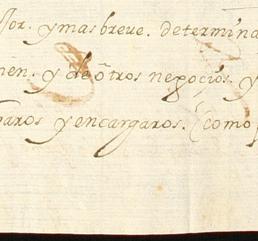 jor. y mas breve. determina
men. y de otros negocios. y
garos y encargaros. (como